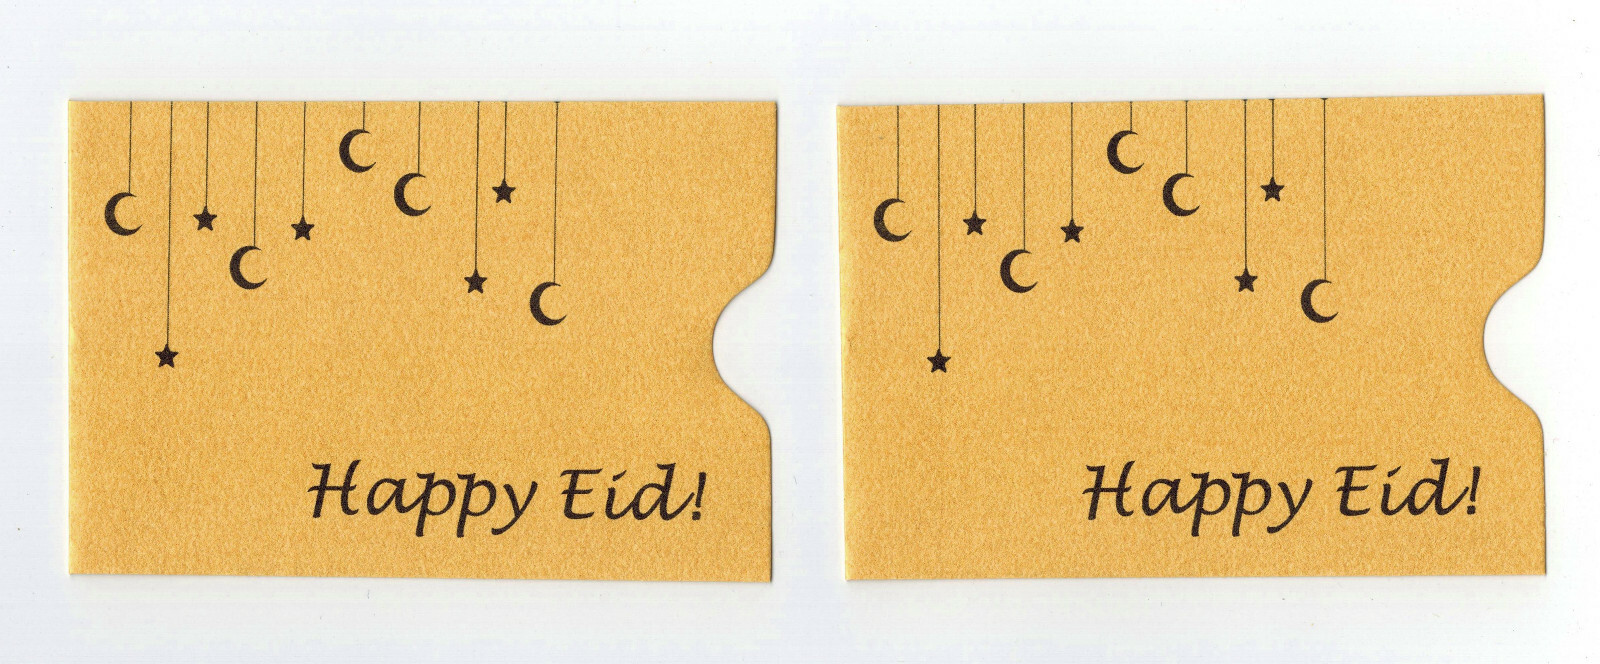 Happy Eid!
Happy Eid!